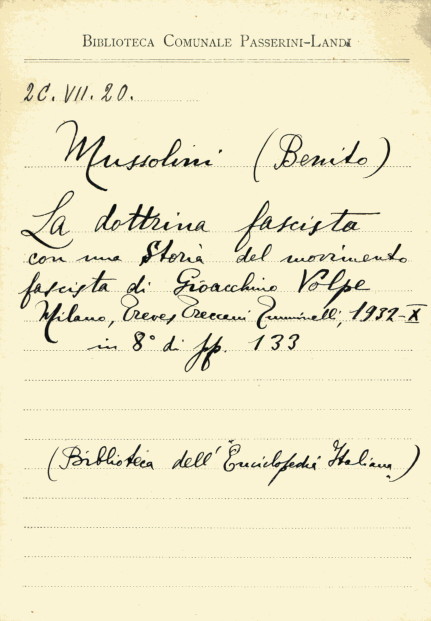 BIBLIOTECA COMUNALE PASSERINI-LANDI
2C. VII. 20.
Mussolini (Benito)
La dottrina fascista
con una Storia del movimento
fascista di Gioacchino Volpe
Milano, Treves Treccani Tumminelli, 1932-X
in 8° di pp. 133
(Biblioteca dell' "Enciclopedia Italiana")